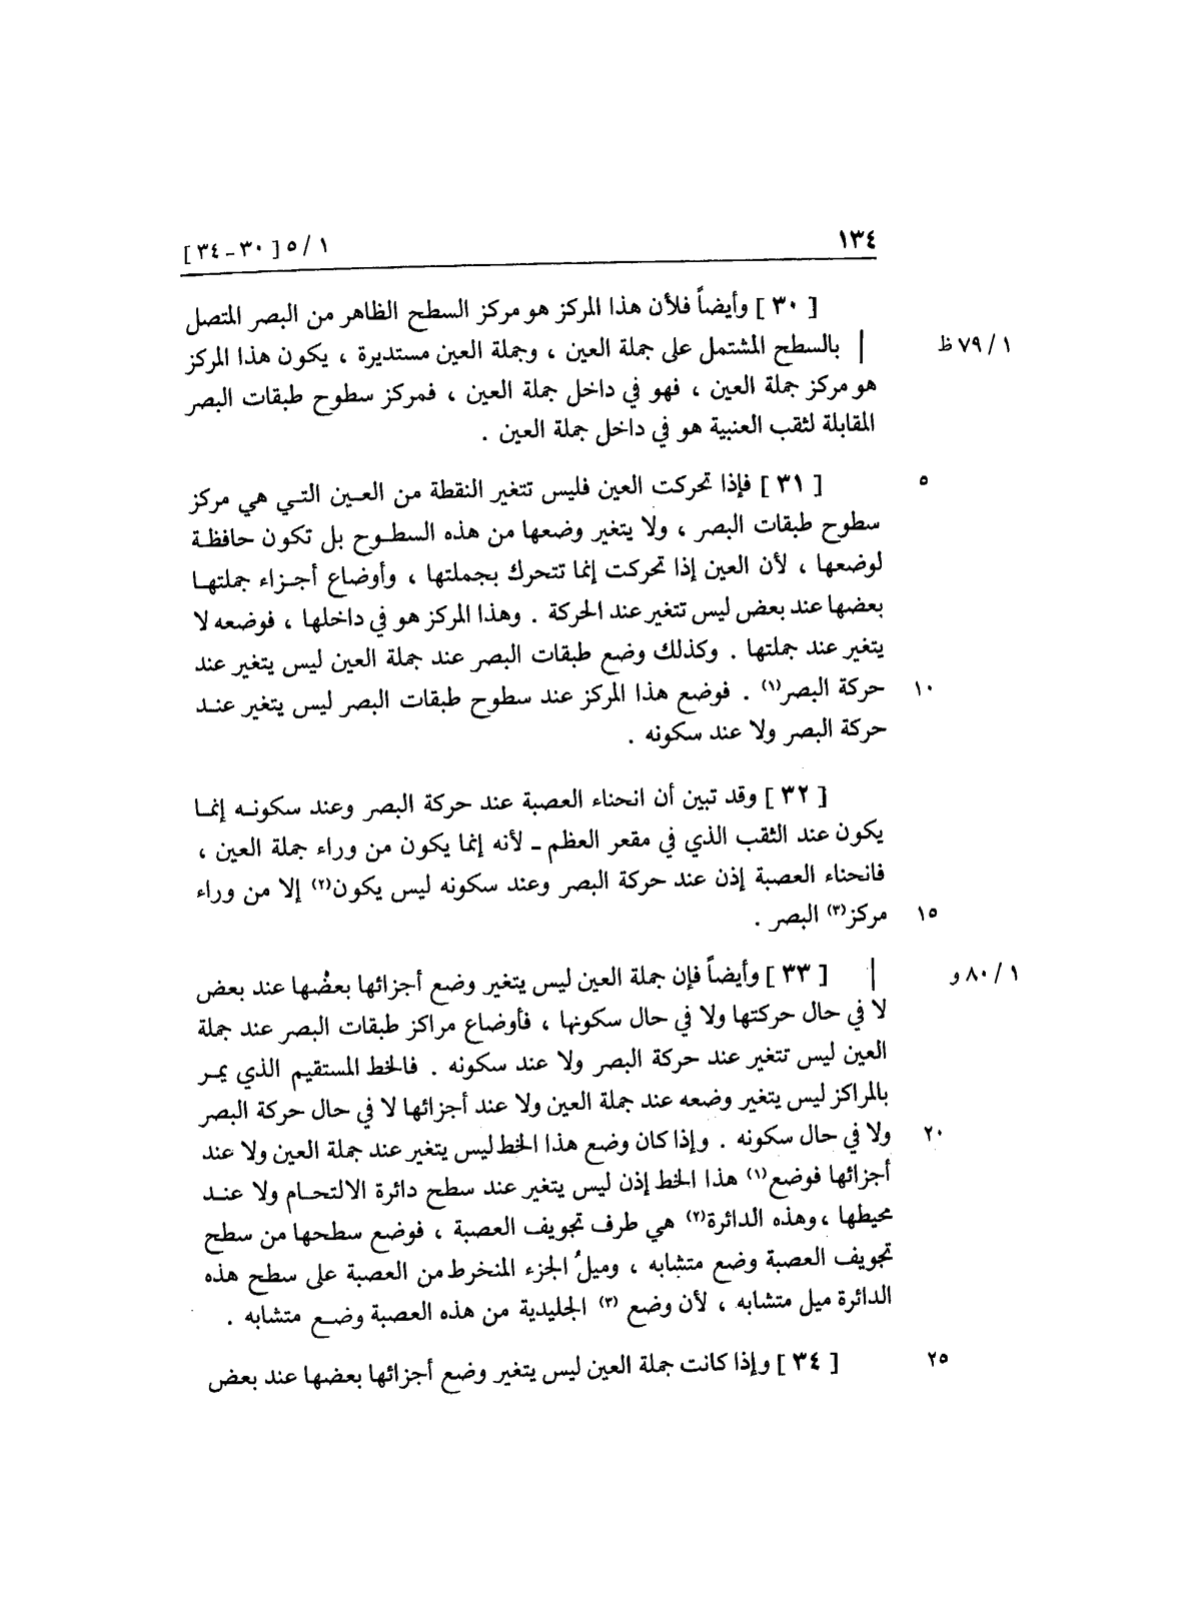 ١٣٤
١ / ٥ [ ٣٠ ـ ٣٤ ]
[ ٣٠ ] وأيضاً فلأن هذا المركز هو مركز السطح الظاهر من البصر المتصل
١ / ٧٩ ظ | بالسطح المشتمل على جملة العين ، وجملة العين مستديرة ، يكون هذا المركز
هو مركز جملة العين ، فهو في داخل جملة العين ، فمركز سطوح طبقات البصر
المقابلة لثقب العنبية هو في داخل جملة العين .
٥ [ ٣١ ] فإذا تحركت العين فليس تتغير النقطة من العـين التـي هي مركز
سطوح طبقات البصر ، ولا يتغير وضعها من هذه السطـوح بل تكون حافظـة
لوضعها ، لأن العين إذا تحركت إنما تتحرك بجملتها ، وأوضاع أجـزاء جملتهـا
بعضها عند بعض ليس تتغير عند الحركة . وهذا المركز هو في داخلها ، فوضعه لا
يتغير عند جملتها . وكذلك وضع طبقات البصر عند جملة العين ليس يتغير عند
١٠ حركة البصر(١) . فوضع هذا المركز عند سطوح طبقات البصر ليس يتغير عنـد
حركة البصر ولا عند سكونه .
[ ٣٢ ] وقد تبين أن انحناء العصبة عند حركة البصر وعند سكونـه إنمـا
يكون عند الثقب الذي في مقعر العظم ـ لأنه إنما يكون من وراء جملة العين ،
فانحناء العصبة إذن عند حركة البصر وعند سكونه ليس يكون(٢) إلا من وراء
١٥ مركز(٣) البصر .
١ / ٨٠ و | [ ٣٣ ] وأيضاً فإن جملة العين ليس يتغير وضع أجزائها بعضُها عند بعض
لا في حال حركتها ولا في حال سكونها ، فأوضاع مراكز طبقات البصر عند جملة
العين ليس تتغير عند حركة البصر ولا عند سكونه . فالخط المستقيم الذي يمـر
بالمراكز ليس يتغير وضعه عند جملة العين ولا عند أجزائها لا في حال حركة البصر
٢٠ ولا في حال سكونه . وإذا كان وضع هذا الخط ليس يتغير عند جملة العين ولا عند
أجزائها فوضع(١) هذا الخط إذن ليس يتغير عند سطح دائرة الالتحـام ولا عنـد
محيطها ، وهذه الدائرة(٢) هي طرف تجويف العصبة ، فوضع سطحها من سطح
تجويف العصبة وضع متشابه ، وميلُ الجزء المنخرط من العصبة على سطح هذه
الدائرة ميل متشابه ، لأن وضع (٣) الجليدية من هذه العصبة وضـع متشابه .
٢٥ [ ٣٤ ] وإذا كانت جملة العين ليس يتغير وضع أجزائها بعضها عند بعض